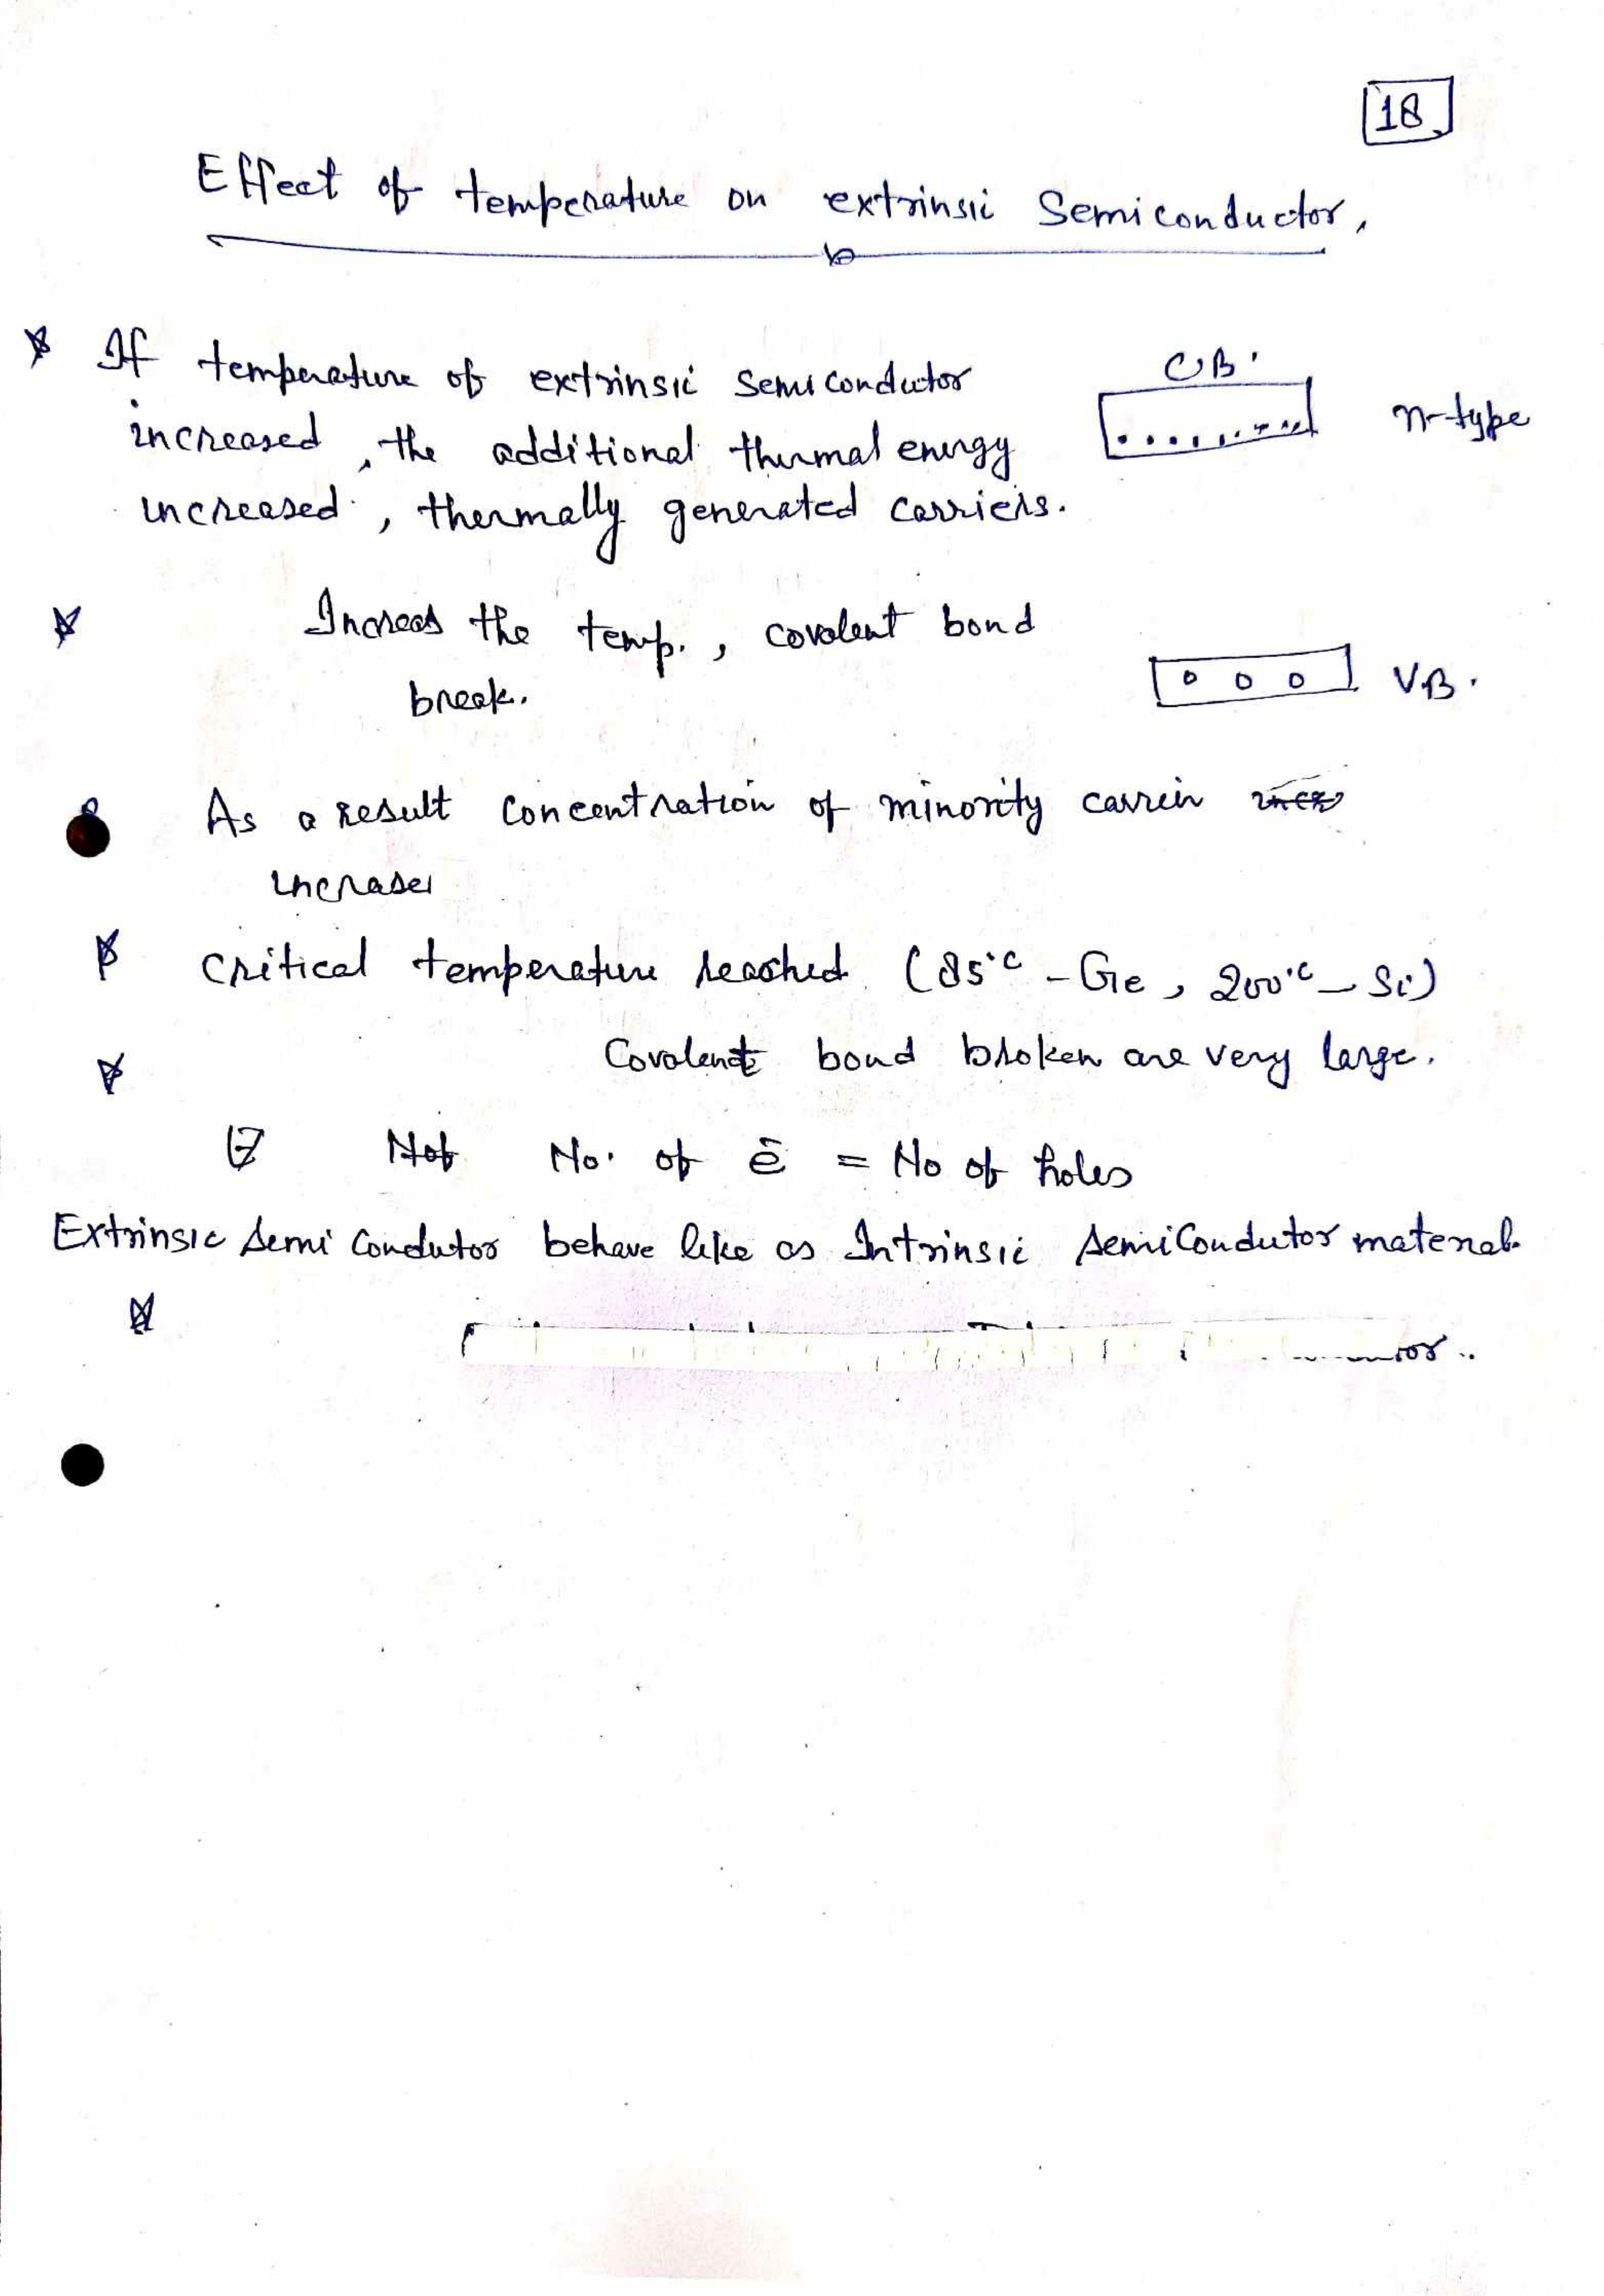 18
Effect of temperature on extrinsic Semiconductor,
If temperature of extrinsic Semiconductor
CB.
increased, the additional thermal energy
n-type
increased, thermally generated carriers.
Increas the temp., covalent bond
break.
V.B.
As a result Concentration of minority carrier
increases
Critical temperature reached (85°C - Ge, 200°C - Si)
Covalent bond broken are very large.
No. of ē = No of holes
Extrinsic Semi Condutor behave like as Intrinsic SemiCondutor material.